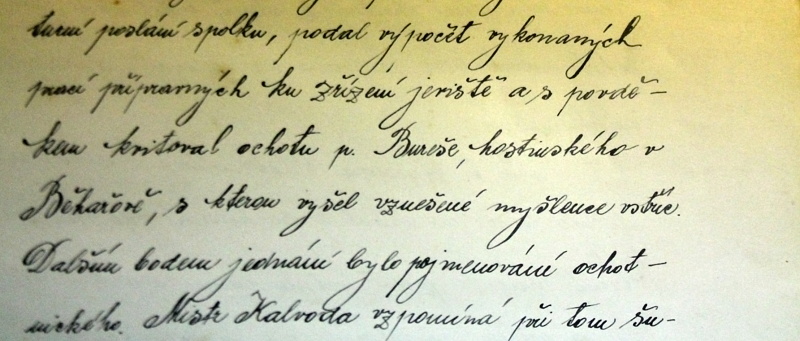 turní poslání spolku, podal výpočet vykonaných
prací přípravných ku zřízení jeviště a s povdě-
kem kvitoval ochotu p. Bureše, hostinského v
Běhařově, s kterou vyšel vznešené myšlence vstříc.
Dalším bodem jednání bylo pojmenování ochot-
nického. Mistr Kalvoda vzpomíná při tom šu-